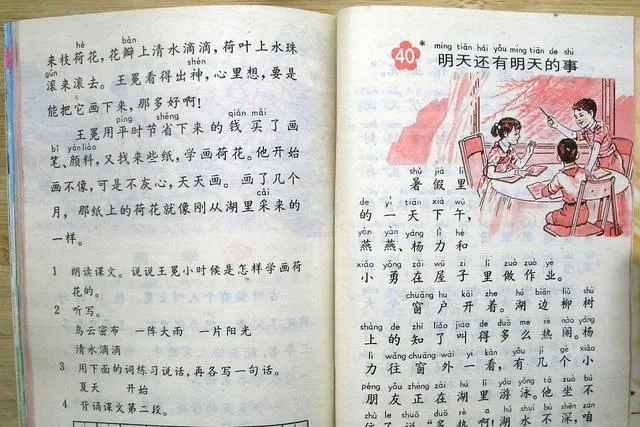 hé bàn
来枝荷花,花瓣上清水滴滴,荷叶上水珠
gǔn shén
滚来滚去。王冕看得出神,心里想,要是
能把它画下来,那多好啊!
píng shěng qián mǎi
王冕用平时节省下来的钱买了画
bǐ yánliào
笔、颜料,又找来些纸,学画荷花。他开始
画不像,可是不灰心,天天画。画了几个
cǎi
月,那纸上的荷花就像刚从湖里采来的
一样。
1 朗读课文。说说王冕小时候是怎样学画荷
花的。
2 听写。
乌云密布 一阵大雨 一片阳光
清水滴滴
3 用下面的词练习说话,再各写一句话。
夏天 开始
4 背诵课文第二段。
míng tiān hái yǒu míng tiān de shì
40* 明天还有明天的事
shǔ jià lǐ
暑假里
de yì tiān xià wǔ
的一天下午,
yàn yàn yáng lì hé
燕燕、杨力和
xiǎo yǒng zài wū zi lǐ zuò zuò yè
小勇在屋子里做作业。
chuāng hu kāi zhe hú biān liǔ shù
窗户开着。湖边柳树
shàng de zhī liǎo jiào de duō me rè nào yáng
上的知了叫得多么热闹。杨
lì wǎng chuāng wài yí kàn yǒu jǐ gè xiǎo
力往窗外一看,有几个小
péng yǒu zhèng zài hú lǐ yóu yǒng tā zuò bú
朋友正在湖里游泳。他坐不
zhù le shuō duō rè a hú shuǐ bù shēn zán
住了,说:"多热啊!湖水不深,咱